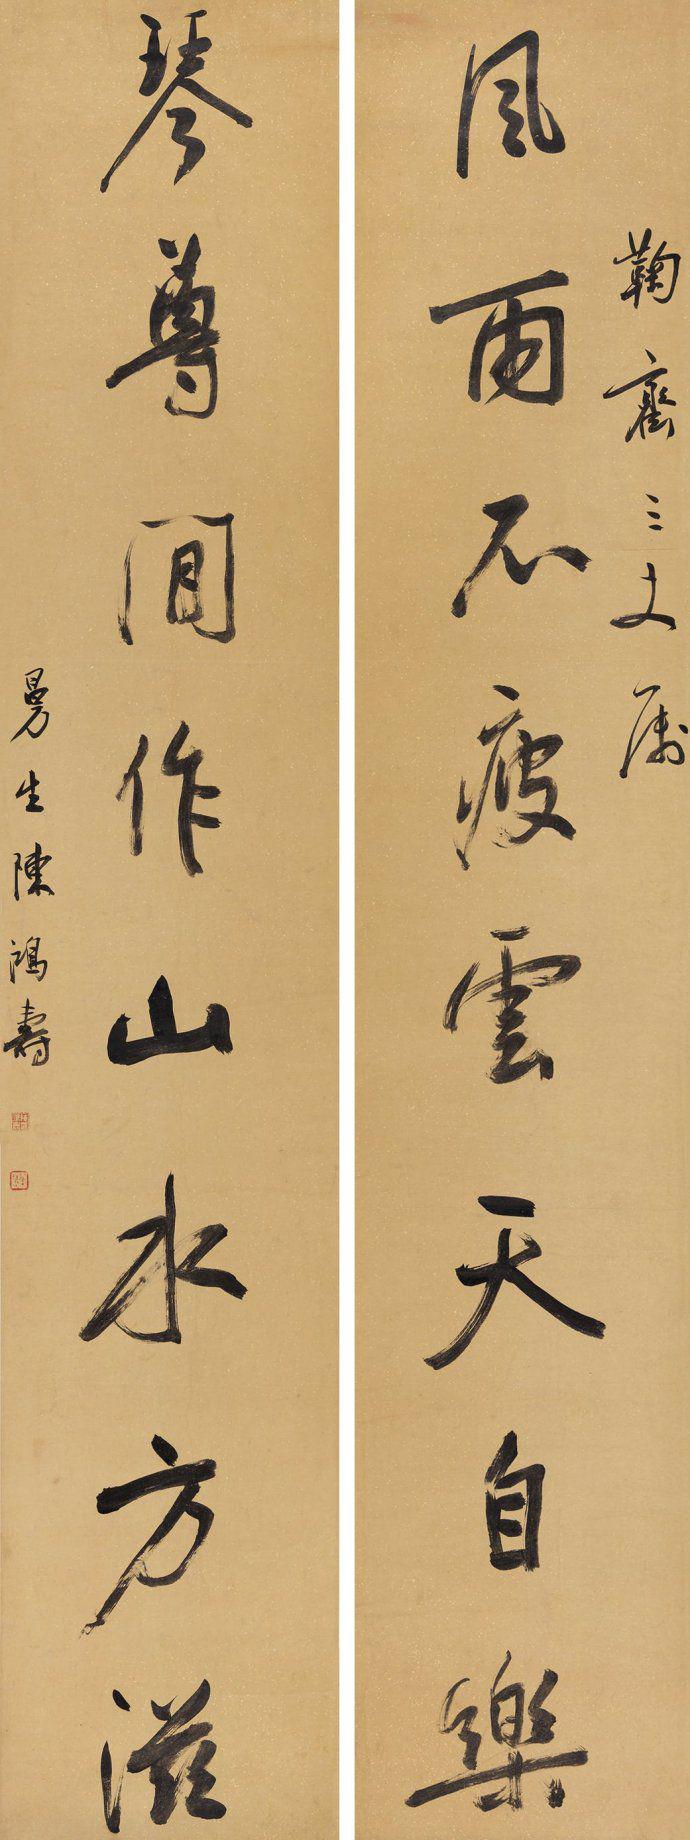 鞠三丈屬
風雨不疲雲天自樂
琴尊閒作山水方滋
曼生陳鴻壽